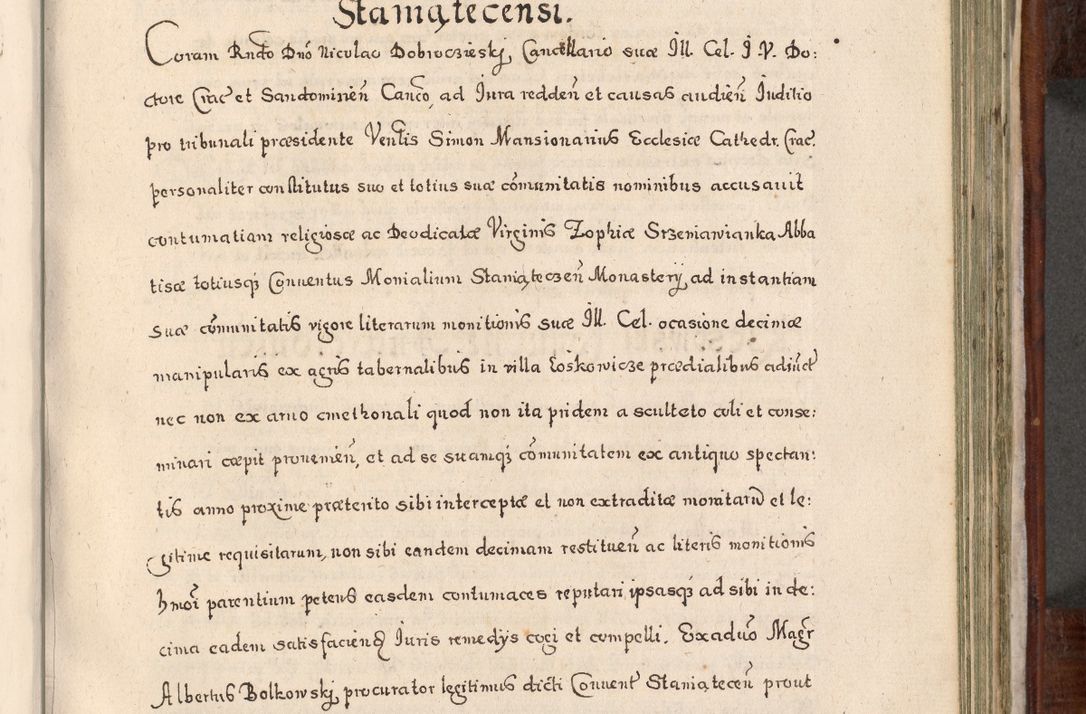 Staniątecensi.
Coram Rndo Dno Nicolao Dobrocziesky, Cancellario suæ Ill. Cel. J. V. Do:
ctore Crac et Sandomirien Canco, ad Jura redden et causas audien Juditio
pro tribunali præsidente Venlis Simon Mansionarius Ecclesiæ Cathedr. Crac.
personaliter constitutus suo et totius suæ comunitatis nominibus accusavit
contumatiam religiosæ ac Deodicatæ Virginis Zophiæ Srzeniawianka Abba
tisæ totiusq Conventus Monialium Staniąteczen Monastery ad instantiam
suæ comunitatis vigore literarum monitionis suæ Ill. Cel. ocasione decimæ
manipularis ex agris tabernalibus in villa Łoskowicze prædialibus adiunct
nec non ex arvo cmethonali quod non ita pridem a sculteto coli et conse:
minari cæpit provenien, et ad se suamq comunitatem ex antiquo spectan:
tis anno proxime præterito sibi interceptæ et non extraditæ monitarum et le:
gitime requisitarum, non sibi eandem decimam restituen ac literis monitionis
hmoi parentium petens easdem contumaces reputari, ipsasq ad sibi in de:
cima eadem satisfaciend Juris remedys cogi et compelli. Exadvo Magr
Albertus Bolkowsky, procurator legitimus dicti Convent Staniątecen prout